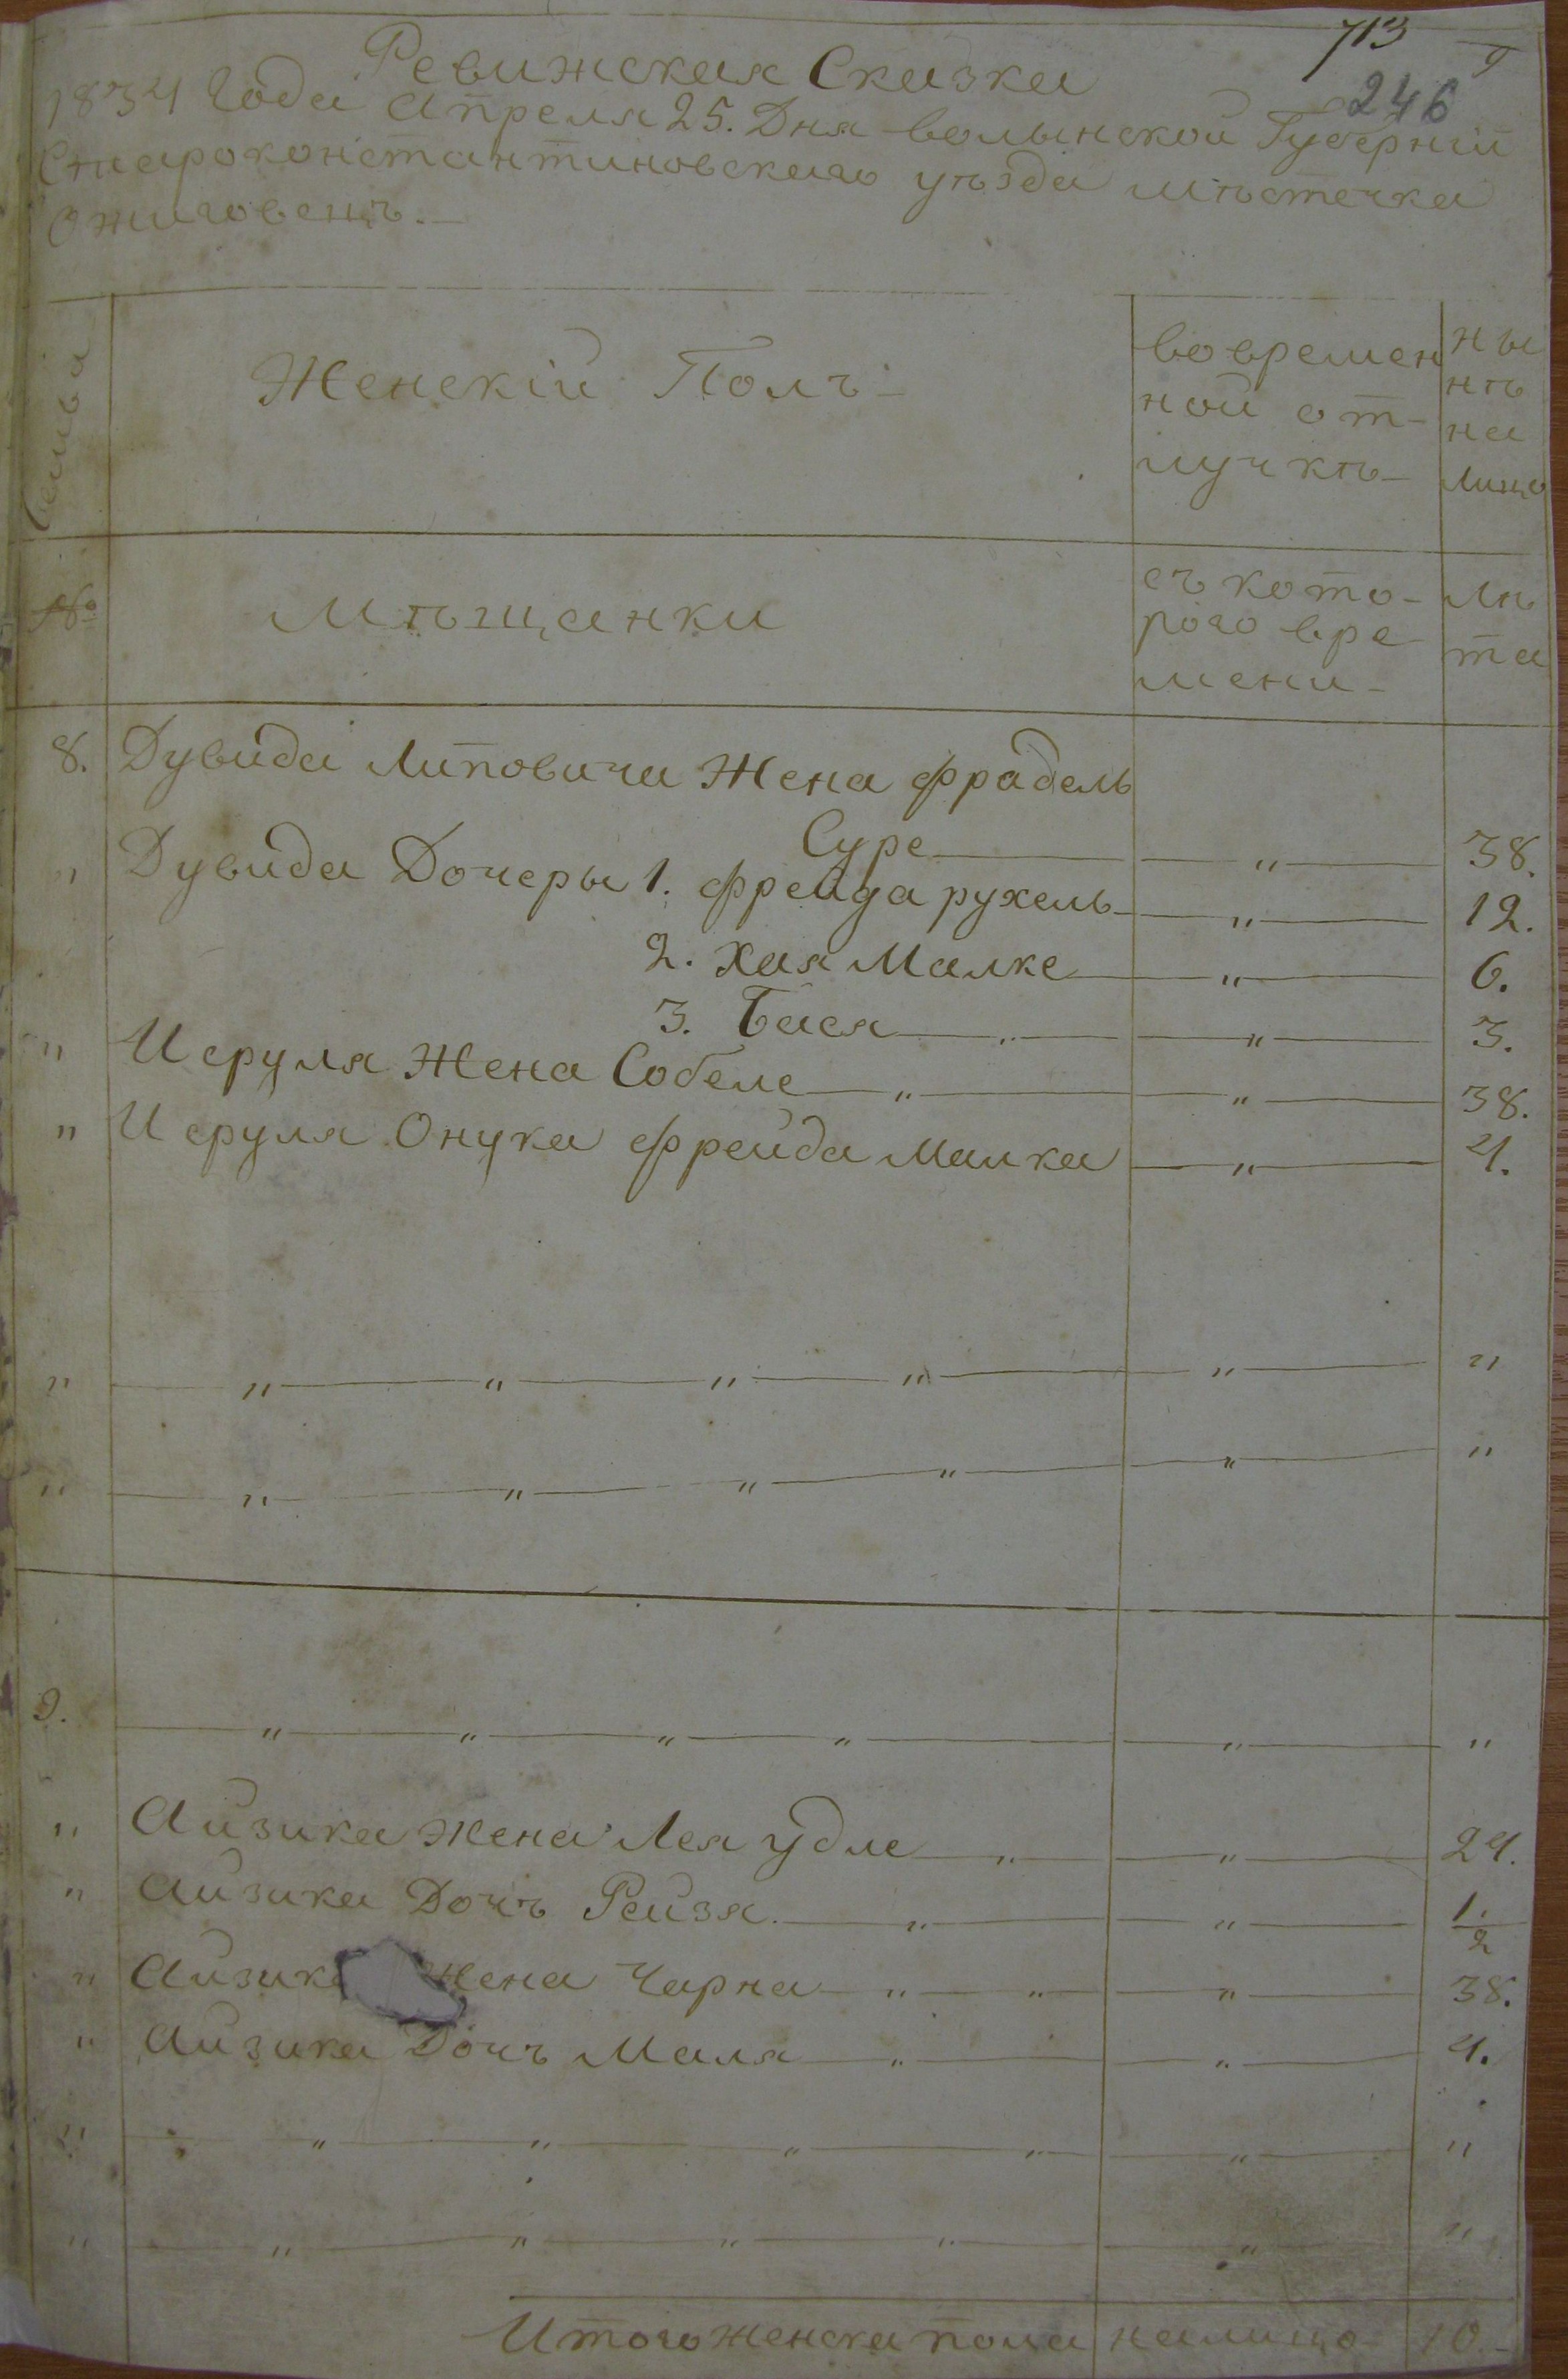 713
9
246
Ревижская Сказка
1834 Года Апреля 25. Дня волынской Губерніи
Староконстантиновскаго уѣзда мѣстечка
Ожиговецъ.
Семья
Женскій Полъ
во времен
ной от-
лучкѣ
ны
нѣ
на
лицо
№
Мѣщанки
съ кото-
рого вре
мени
Лѣ
та
8. Дувида Липовича Жена Фрадель
Суре „ 38.
„ Дувида Дочеры 1. Фрейда рухель „ 12.
2. Хая Малке „ 6.
3. Бася „ „ 3.
„ Исруля Жена Собеле „ „ 38.
„ Исруля Онука Фрейда Малка „ 4.
„ „ „ „ „ „ „
„ „ „ „ „ „ „
9. „ „ „ „ „ „
„ Айзика Жена Лея Удле „ „ 24.
„ Айзика Дочъ Рейзя. „ „ 1/2
„ Айзика Жена Чарна „ „ „ 38.
„ Айзика Дочъ Маля „ „ 4.
„ „ „ „ „ „ „
„ „ „ „ „ „ „
Итого женска пола налицо 10.